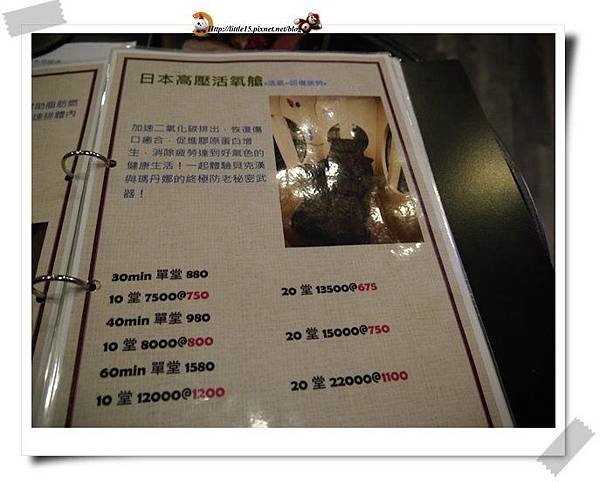 Http://little15.pixnet.net/blog
日本高壓活氧艙
加速二氧化碳排出、恢復傷
口癒合、促進膠原蛋白增
生、消除疲勞達到好氣色的
健康生活！一起體驗貝克漢
與瑪丹娜的終極防老秘密武
器！
30min 單堂 880
10 堂 7500@750 20 堂 13500@675
40min 單堂 980
10 堂 8000@800 20 堂 15000@750
60min 單堂 1580
10 堂 12000@1200 20 堂 22000@1100